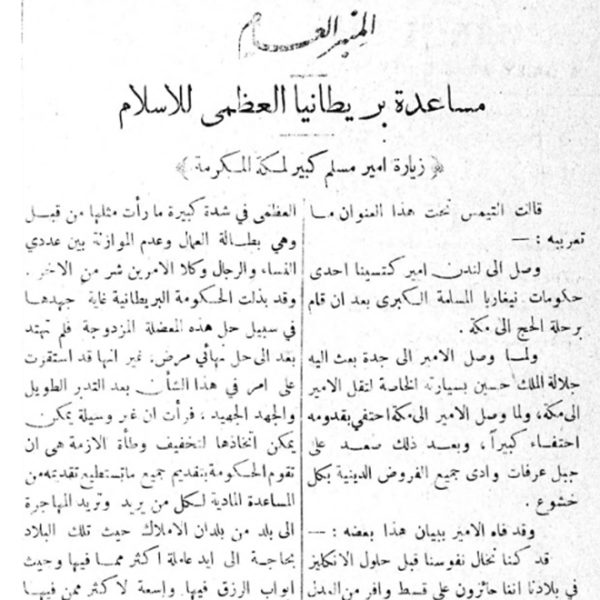 المنبر العام
مساعدة بريطانيا العظمى للاسلام
﴿ زيارة امير مسلم كبير لمكة المكرمة ﴾
قالت التيمس تحت هذا العنوان ما
تعريبه : —
وصل الى لندن امير كتسينا احدى
حكومات نيغاريا المسلمة الكبرى بعد ان قام
برحلة الحج الى مكة .
ولما وصل الامير الى جدة بعث اليه
جلالة الملك حسين بسيارته الخاصة لتقل الامير
الى مكة ، ولما وصل الامير الى مكة احتفي بقدومه
احتفاء كبيراً ، وبعد ذلك صعد على
جبل عرفات وادى جميع الفروض الدينية بكل
خشوع .
وقد فاه الامير ببيان هذا بعضه : —
قد كنا نخال نفوسنا قبل حلول الانكليز
في بلادنا اننا حائزون على قسط وافر من المدل
العظمى في شدة كبيرة ما رأت مثلها من قبل
وهي بطالة العمال وعدم الموازنة بين عددي
النساء والرجال وكلا الامرين شر من الاخر .
وقد بذلت الحكومة البريطانية غاية جهدها
في سبيل حل هذه المعضلة المزدوجة فلم تهتد
بعد الى حل نهائي مرض ، غير انها قد استقرت
على امر في هذا الشأن بعد التدبر الطويل
والجهد الجهيد ، فرأت ان خير وسيلة يمكن
يمكن اتخاذها لتخفيف وطأة الازمة هى ان
تقوم الحكومة بتقديم جميع ما تستطيع تقديمه من
المساعدة المادية لكل من يريد وتريد المهاجرة
الى بلد من بلدان الاملاك حيث تلك البلاد
بحاجة الى ايد عاملة اكثر مما فيها وحيث
ابواب الرزق فيها واسعة لاكثر ممن فيها